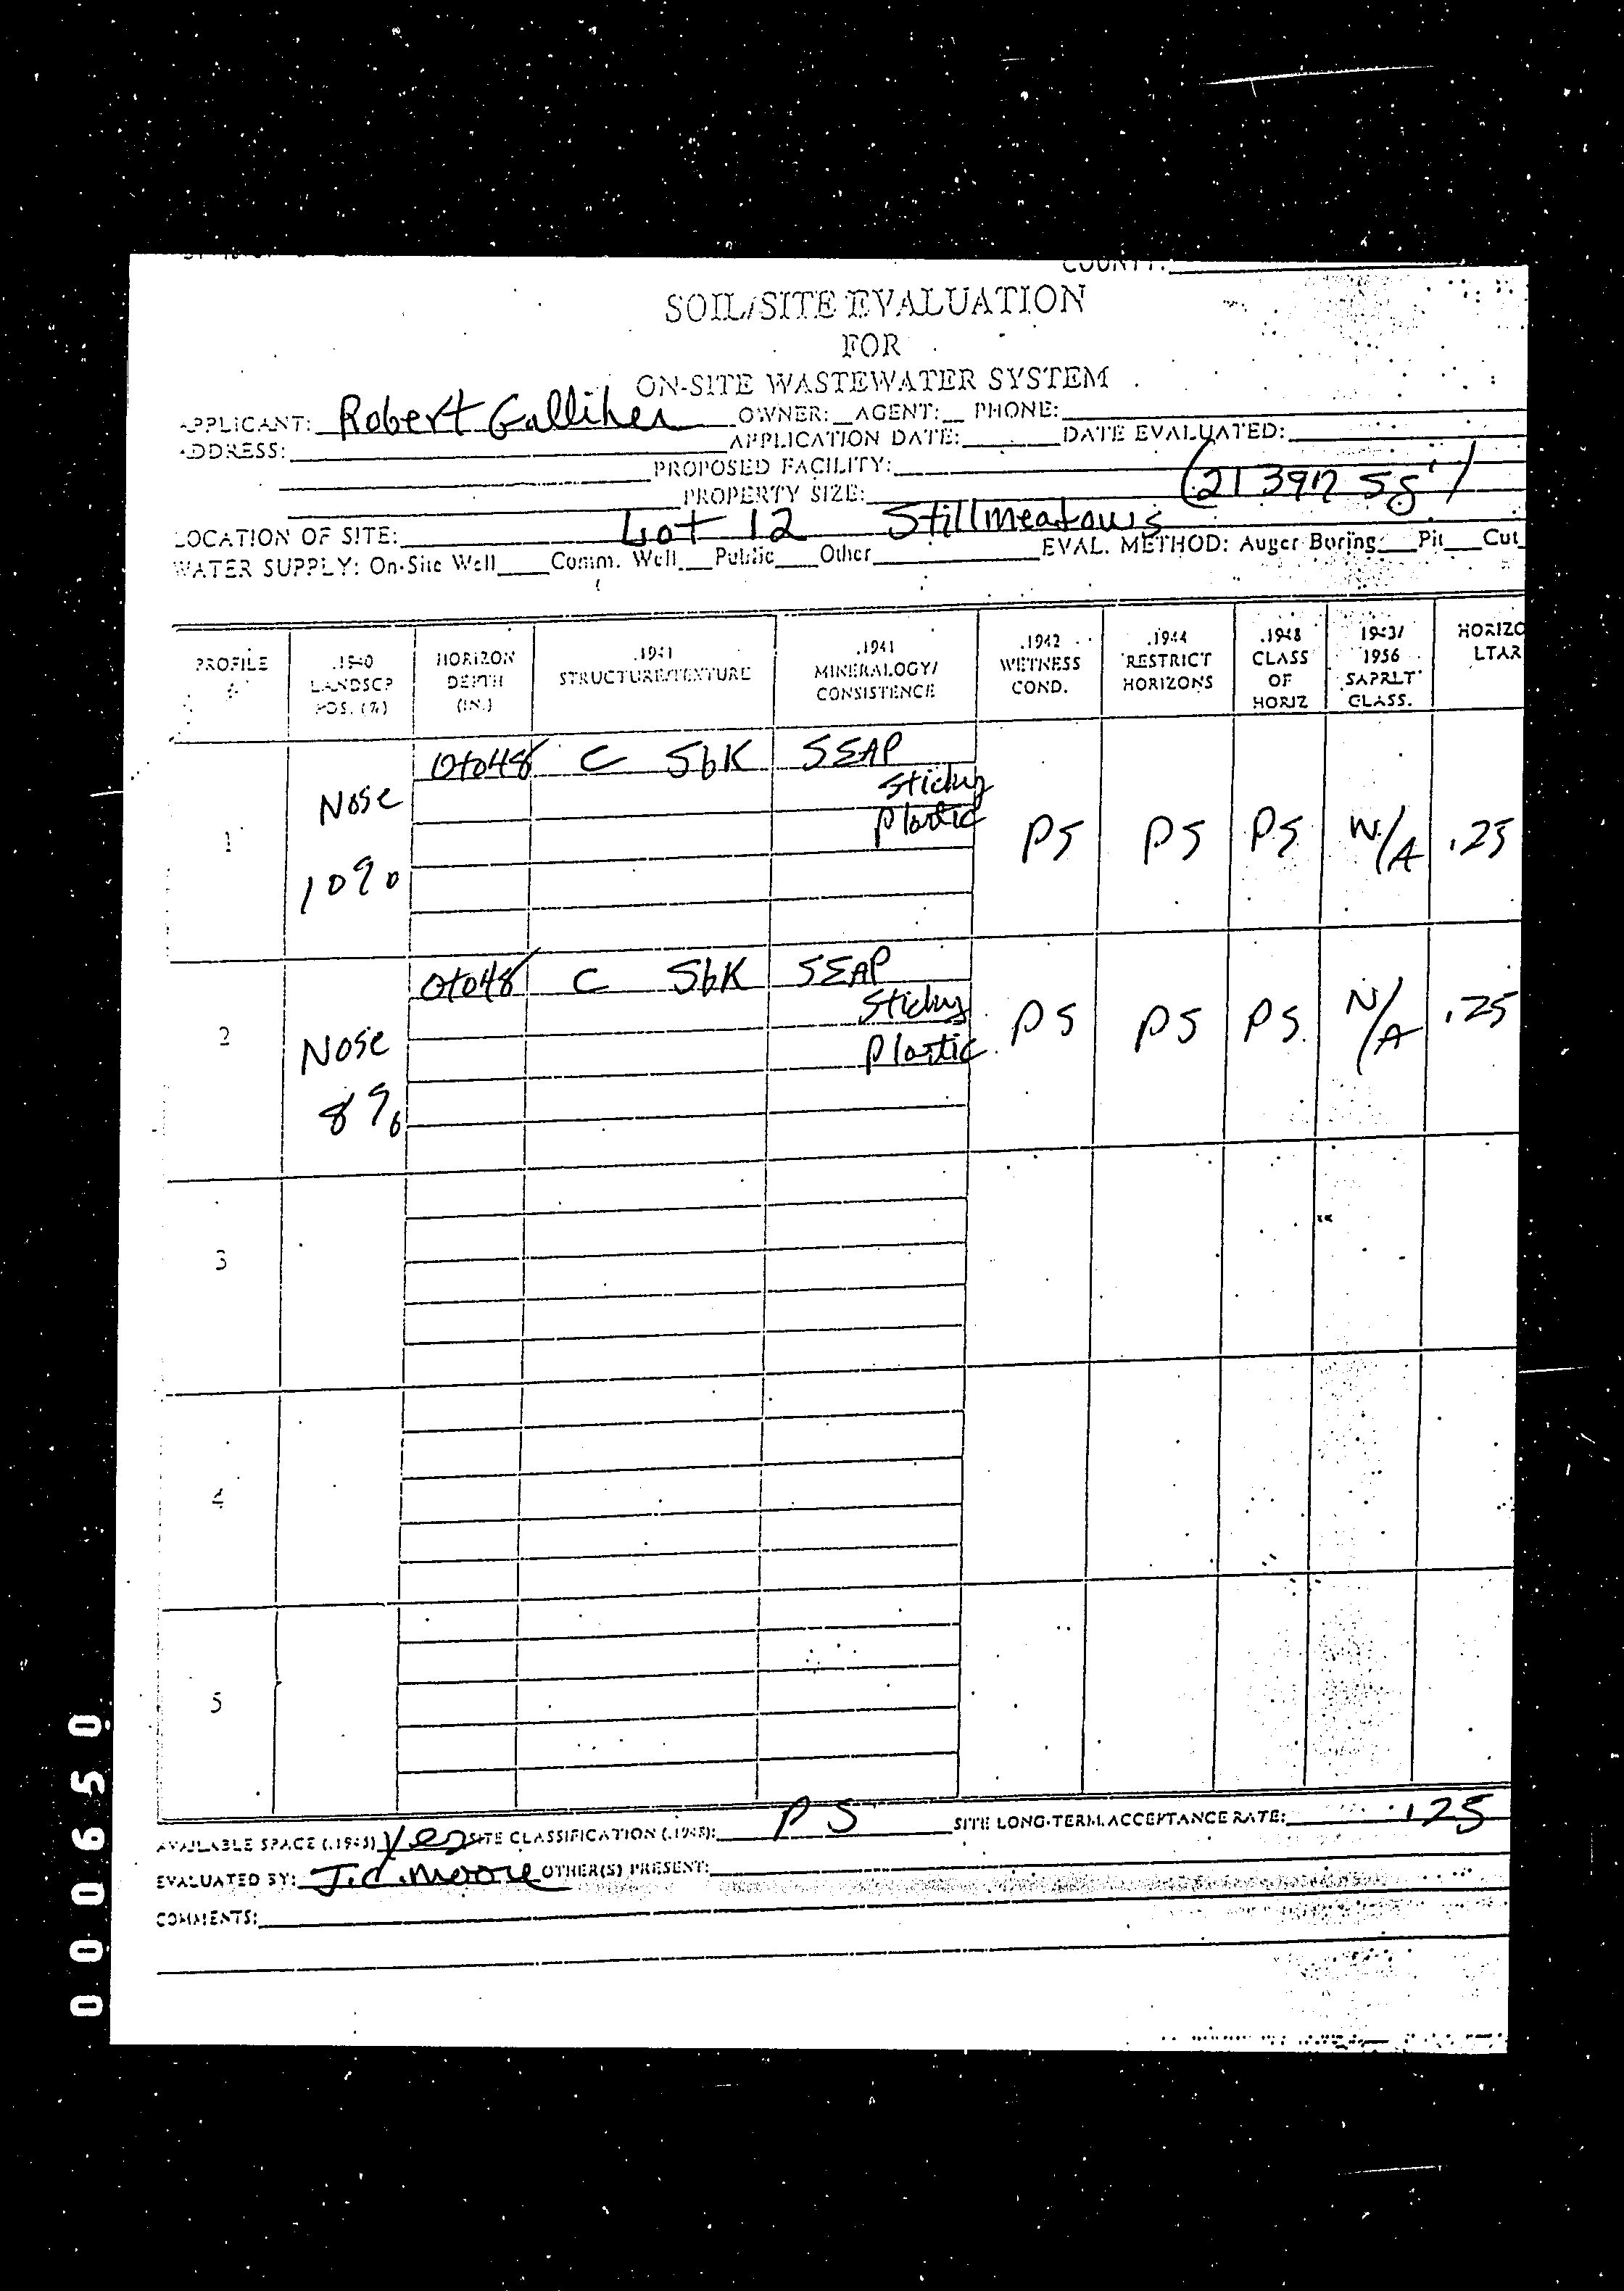 COUNTY:
SOIL/SITE EVALUATION
FOR
ON-SITE WASTEWATER SYSTEM
APPLICANT: Robert Galliher OWNER:__AGENT:__ PHONE:
ADDRESS: APPLICATION DATE: DATE EVALUATED:
PROPOSED FACILITY:
PROPERTY SIZE: (21397 sq')
LOCATION OF SITE: Lot 12 Stillmeadows
WATER SUPPLY: On-Site Well____Comm. Well___Public___Other EVAL. METHOD: Auger Boring___Pit___Cut
PROFILE # .1940 LANDSCP POS. (%) HORIZON DEPTH (IN.) .1941 STRUCTURE/TEXTURE .1941 MINERALOGY/ CONSISTENCE .1942 WETNESS COND. .1944 RESTRICT HORIZONS .1948 CLASS OF HORIZ 1943/ 1956 SAPRLT CLASS. HORIZO LTAR
1 Nose 10% 0to48 C SbK SEXP Sticky Plastic PS PS PS N/A .25
2 Nose 8% 0to48 C SbK SEXP Sticky Plastic PS PS PS N/A .25
3
4
5
AVAILABLE SPACE (.1945) yes SITE CLASSIFICATION (.1948): PS SITE LONG-TERM ACCEPTANCE RATE: .25
EVALUATED BY: J.C. Moore OTHER(S) PRESENT:
COMMENTS:
000650